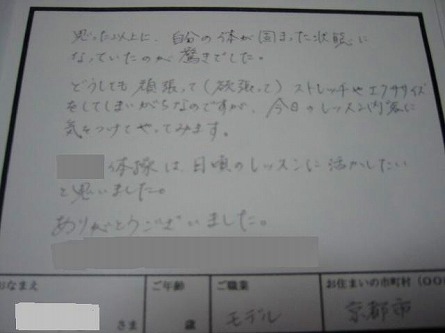 思った以上に、自分の体が固まった状態に
なっていたのが驚きでした。
どうしても頑張って(欲張って)ストレッチやエクササイズ
をしてしまいがちなのですが、今日のレッスン内容に
気をつけてやってみます。
体操は日頃のレッスンに活かしたい
と思いました。
ありがとうございました。
おなまえ ご年齢 ご職業 お住まいの市町村(○○
さま 歳 モデル 京都市